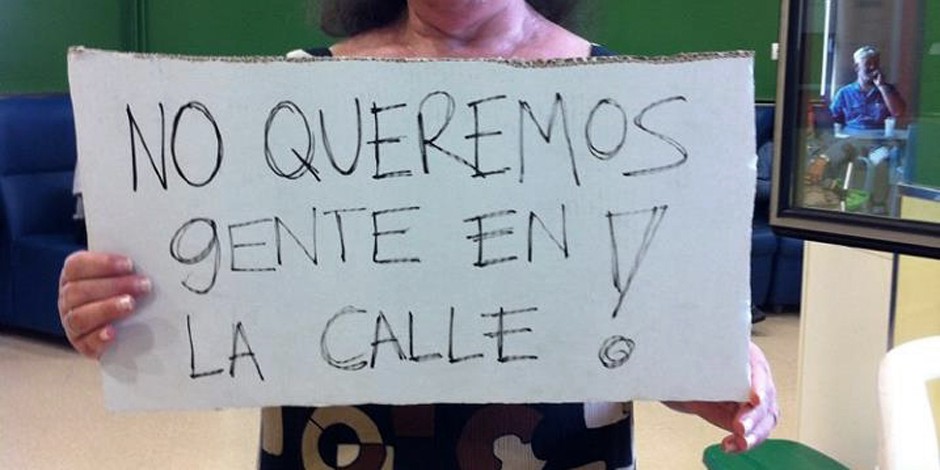 NO QUEREMOS
gENTE EN !
LA CALLE